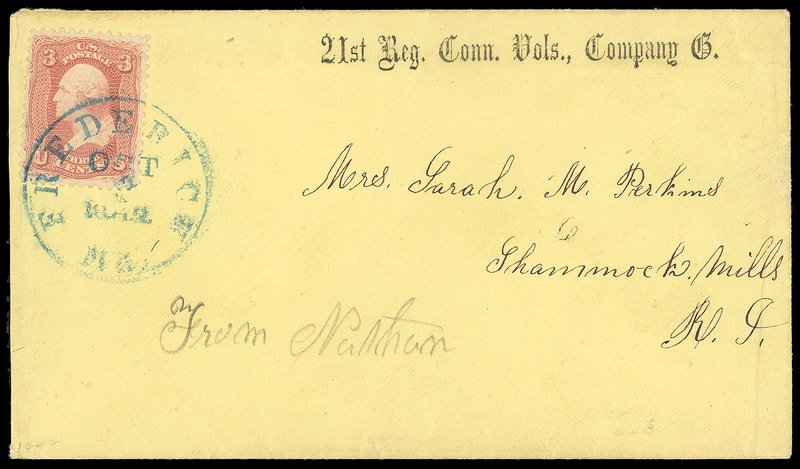 21st Reg. Conn. Vols., Company G.
3 U.S. 3
POSTAGE
THREE
CENTS
FREDERICK
OCT
1862
Md.
Mrs. Sarah. M. Perkins
Shannnock. Mills
R. I.
From Nathan